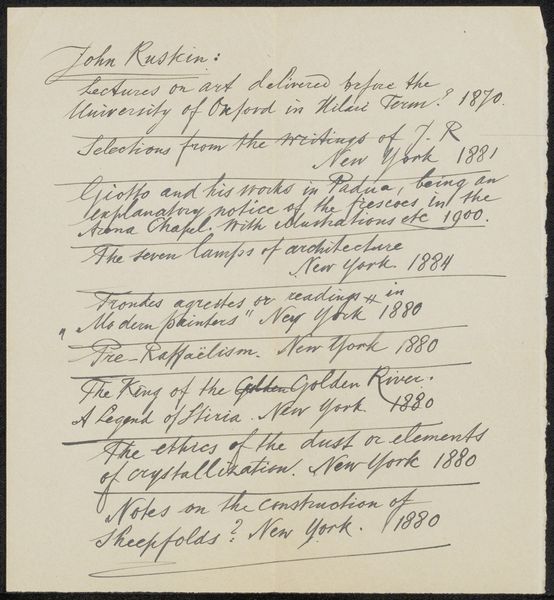 John Ruskin:
Lectures on art delivered before the
University of Oxford in Hilari Term? 1870.
Selections from the writings of J. R
New York 1881
Giotto and his works in Padua, being an
explanatory notice of the frescoes in the
Arena Chapel. With illustrations etc 1900.
The seven lamps of architecture
New York. 1884
Frondes agrestes or readings in
„Modern painters" New York 1880
Pre-Raffaëlism. New York 1880
The King of the Golden Golden River.
A Legend of Stiria. New York. 1880
The ethics of the dust or elements
of crystallization. New York 1880
Notes on the construction of
Sheepfolds? New York. 1880